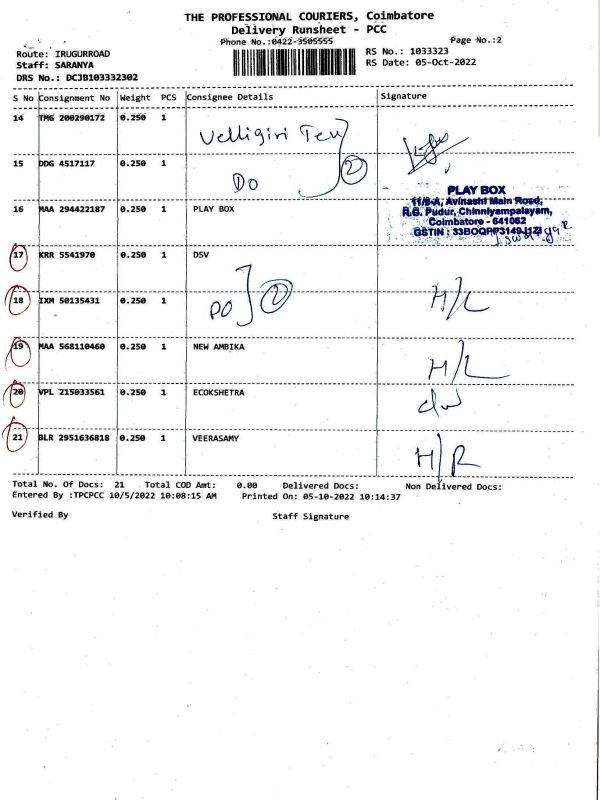 THE PROFESSIONAL COURIERS, Coimbatore
Delivery Runsheet - PCC
Phone No.:0422-3505555 Page No.:2
Route: IRUGURROAD RS No.: 1033323
Staff: SARANYA RS Date: 05-Oct-2022
DRS No.: DCJB103332302
S No Consignment No Weight PCS Consignee Details Signature
14 TMG 200290172 0.250 1
Velligiri Tex
15 DDG 4517117 0.250 1
DO 2
16 MAA 294422187 0.250 1 PLAY BOX
PLAY BOX
11/6-A, Avinashi Main Road,
R.G. Pudur, Chinniyampalayam,
Coimbatore - 641062
GSTIN : 33BOQPP3149J1ZI
17 KRR 5541970 0.250 1 DSV
18 IXM 50135431 0.250 1
DO 2 H/L
19 MAA 568110460 0.250 1 NEW AMBIKA
H/L
20 VPL 215033561 0.250 1 ECOKSHETRA
21 BLR 2951636818 0.250 1 VEERASAMY
H/R
Total No. Of Docs: 21 Total COD Amt: 0.00 Delivered Docs: Non Delivered Docs:
Entered By :TPCPCC 10/5/2022 10:08:15 AM Printed On: 05-10-2022 10:14:37
Verified By Staff Signature